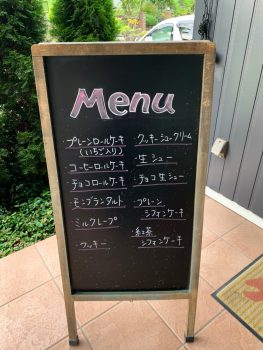 Menu
プレーンロールケーキ
(いちご入り)
コーヒーロールケーキ
チョコロールケーキ
モンブランタルト
ミルクレープ
クッキー
クッキーシュークリーム
生シュー
チョコ生シュー
プレーン
シフォンケーキ
紅茶
シフォンケーキ